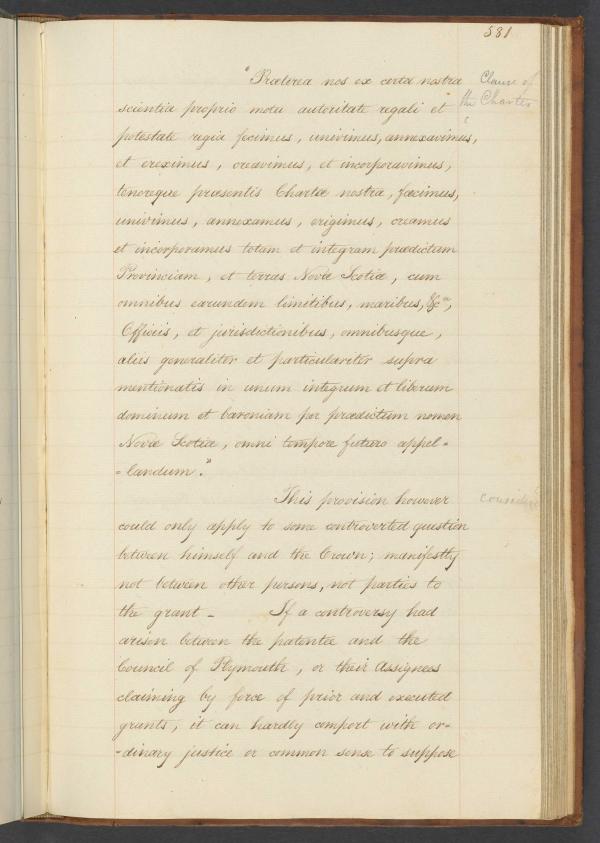 581
"Præterea nos ex certa nostra
Clause of
the Charter
scientia proprio motu autoritate regali et
potestate regia fecimus, univimus, annexavimus,
et ereximus, creavimus, et incorporavimus,
tenoreque præsentis Chartæ nostra, fæcimus,
univimus, annexamus, erigimus, creamus
et incorporamus totam et integram prædictam
Provinciam, et terras Novæ Scotiæ, cum
omnibus earundem limitibus, maribus, &ca,
Officiis, et jurisdictionibus, omnibusque,
aliis generaliter et particulariter supra
mentionatis in unum integrum et liberum
dominium et baroniam per prædictum nomen
Novæ Scotiæ, omni tempore futuro appel-
-landum."
This provision however
could only apply to some controverted question
between himself and the Crown; manifestly
not between other persons, not parties to
the grant - If a controversy had
arisen between the patentee and the
Council of Plymouth, or their Assignees
claiming by force of prior and executed
grants, it can hardly comport with or-
-dinary justice or common sense to suppose